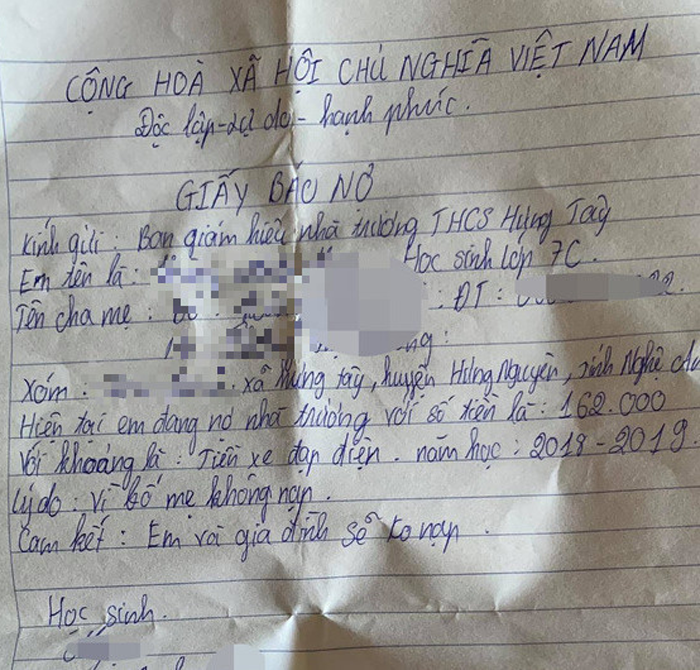 CỘNG HOÀ XÃ HỘI CHỦ NGHĨA VIỆT NAM
Độc lập - tự do - hạnh phúc.
GIẤY BÁO NỢ
Kính gửi : Ban giám hiệu nhà trường THCS Hưng Tây
Em tên là : Học sinh lớp 7C.
Tên cha mẹ : : ĐT : 22.
ng :
Xóm . . xã Hưng tây, huyện Hưng Nguyên, tỉnh Nghệ
Hiện tại em đang nợ nhà trường với số tiền là : 162.000
Với khoảng là : Tiền xe đạp điện . năm học : 2018 - 2019.
Lý do : Vì bố mẹ không nạp .
Cam kết : Em và gia đình sẽ ko nạp .
Học sinh.